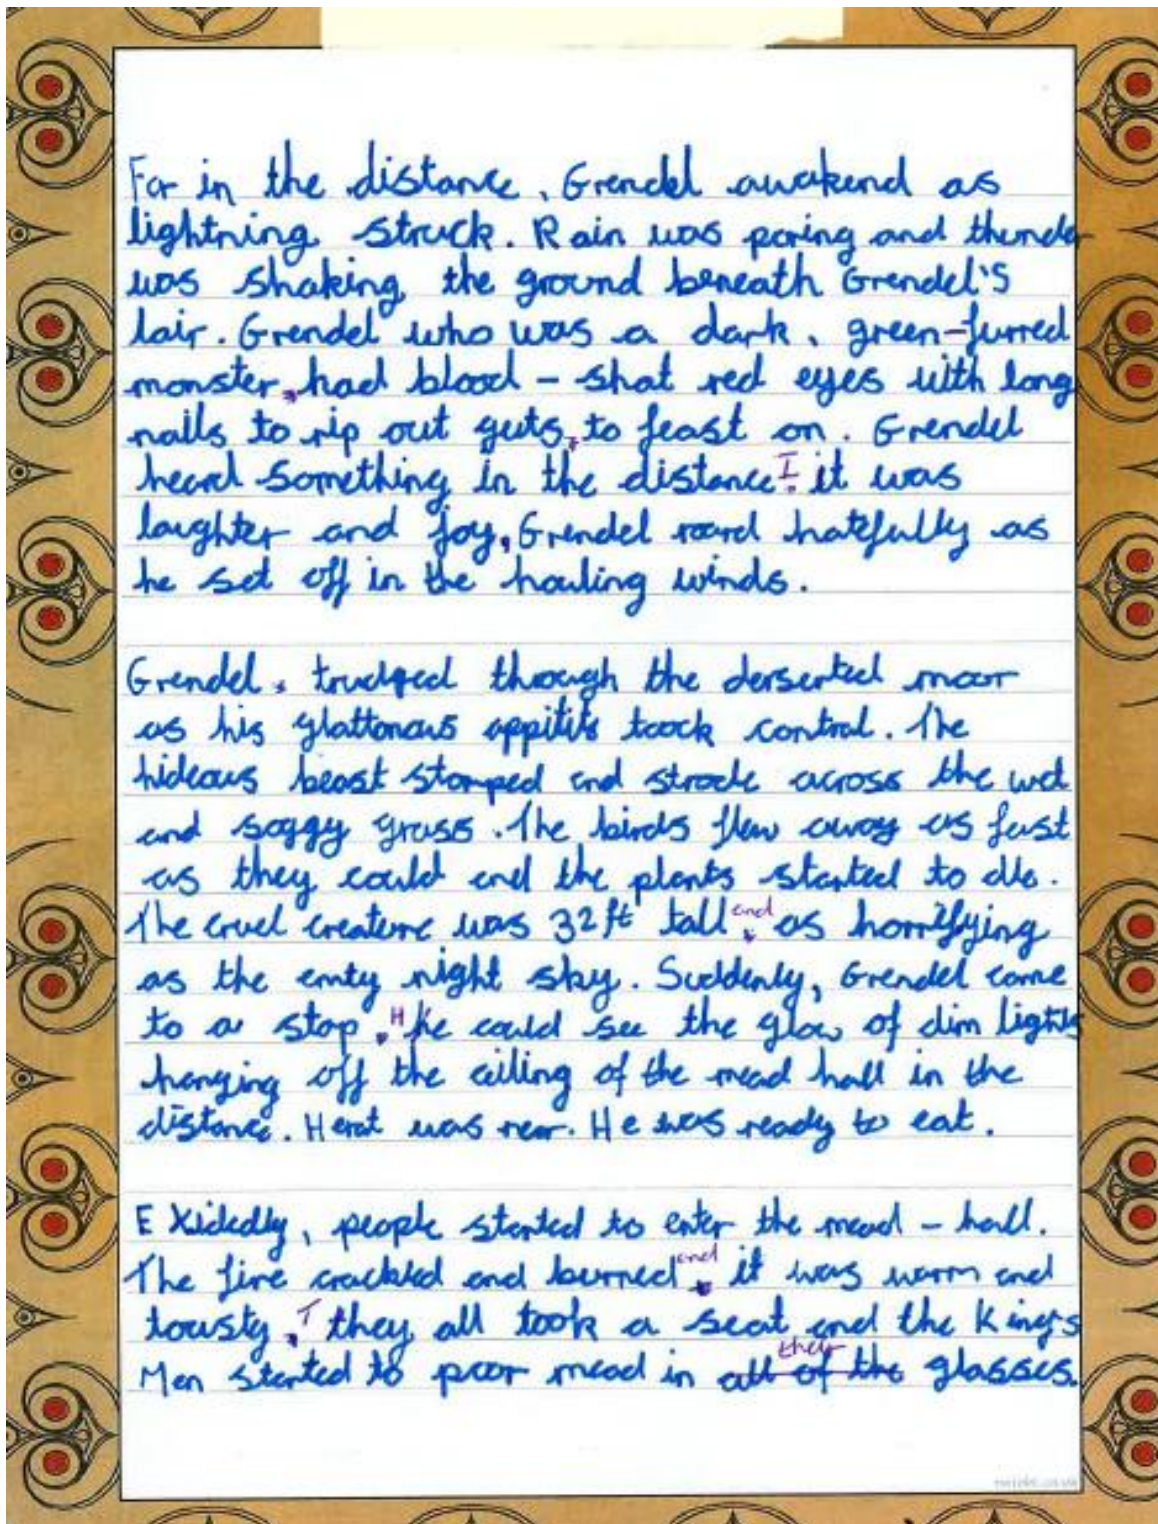 Far in the distance, Grendel awakend as
lightning struck. Rain was poring and thunder
was shaking the ground beneath Grendel's
lair. Grendel who was a dark, green-furred
monster, had blood - shot red eyes with long
nails to rip out guts, to feast on. Grendel
heard something in the distance. I it was
laughter and joy. Grendel roard hatefully as
he set off in the howling winds.
Grendel, trudged through the derserted moor
as his gluttonous appitite toock control. The
hideous beast stomped and strode across the wet
and soggy grass. The birds flew away as fast
as they could and the plants started to die.
The cruel creature was 32ft tall, and as horrifying
as the emty night sky. Suddenly, Grendel came
to a stop. H he could see the glow of dim lights
hanging off the ceiling of the mead hall in the
distance. Herot was near. He was ready to eat.
Exidedly, people started to enter the mead - hall.
The fire crackled and burned and it was warm and
tousty. T they all took a seat and the King's
Men started to poor mead in all of the their glasses.